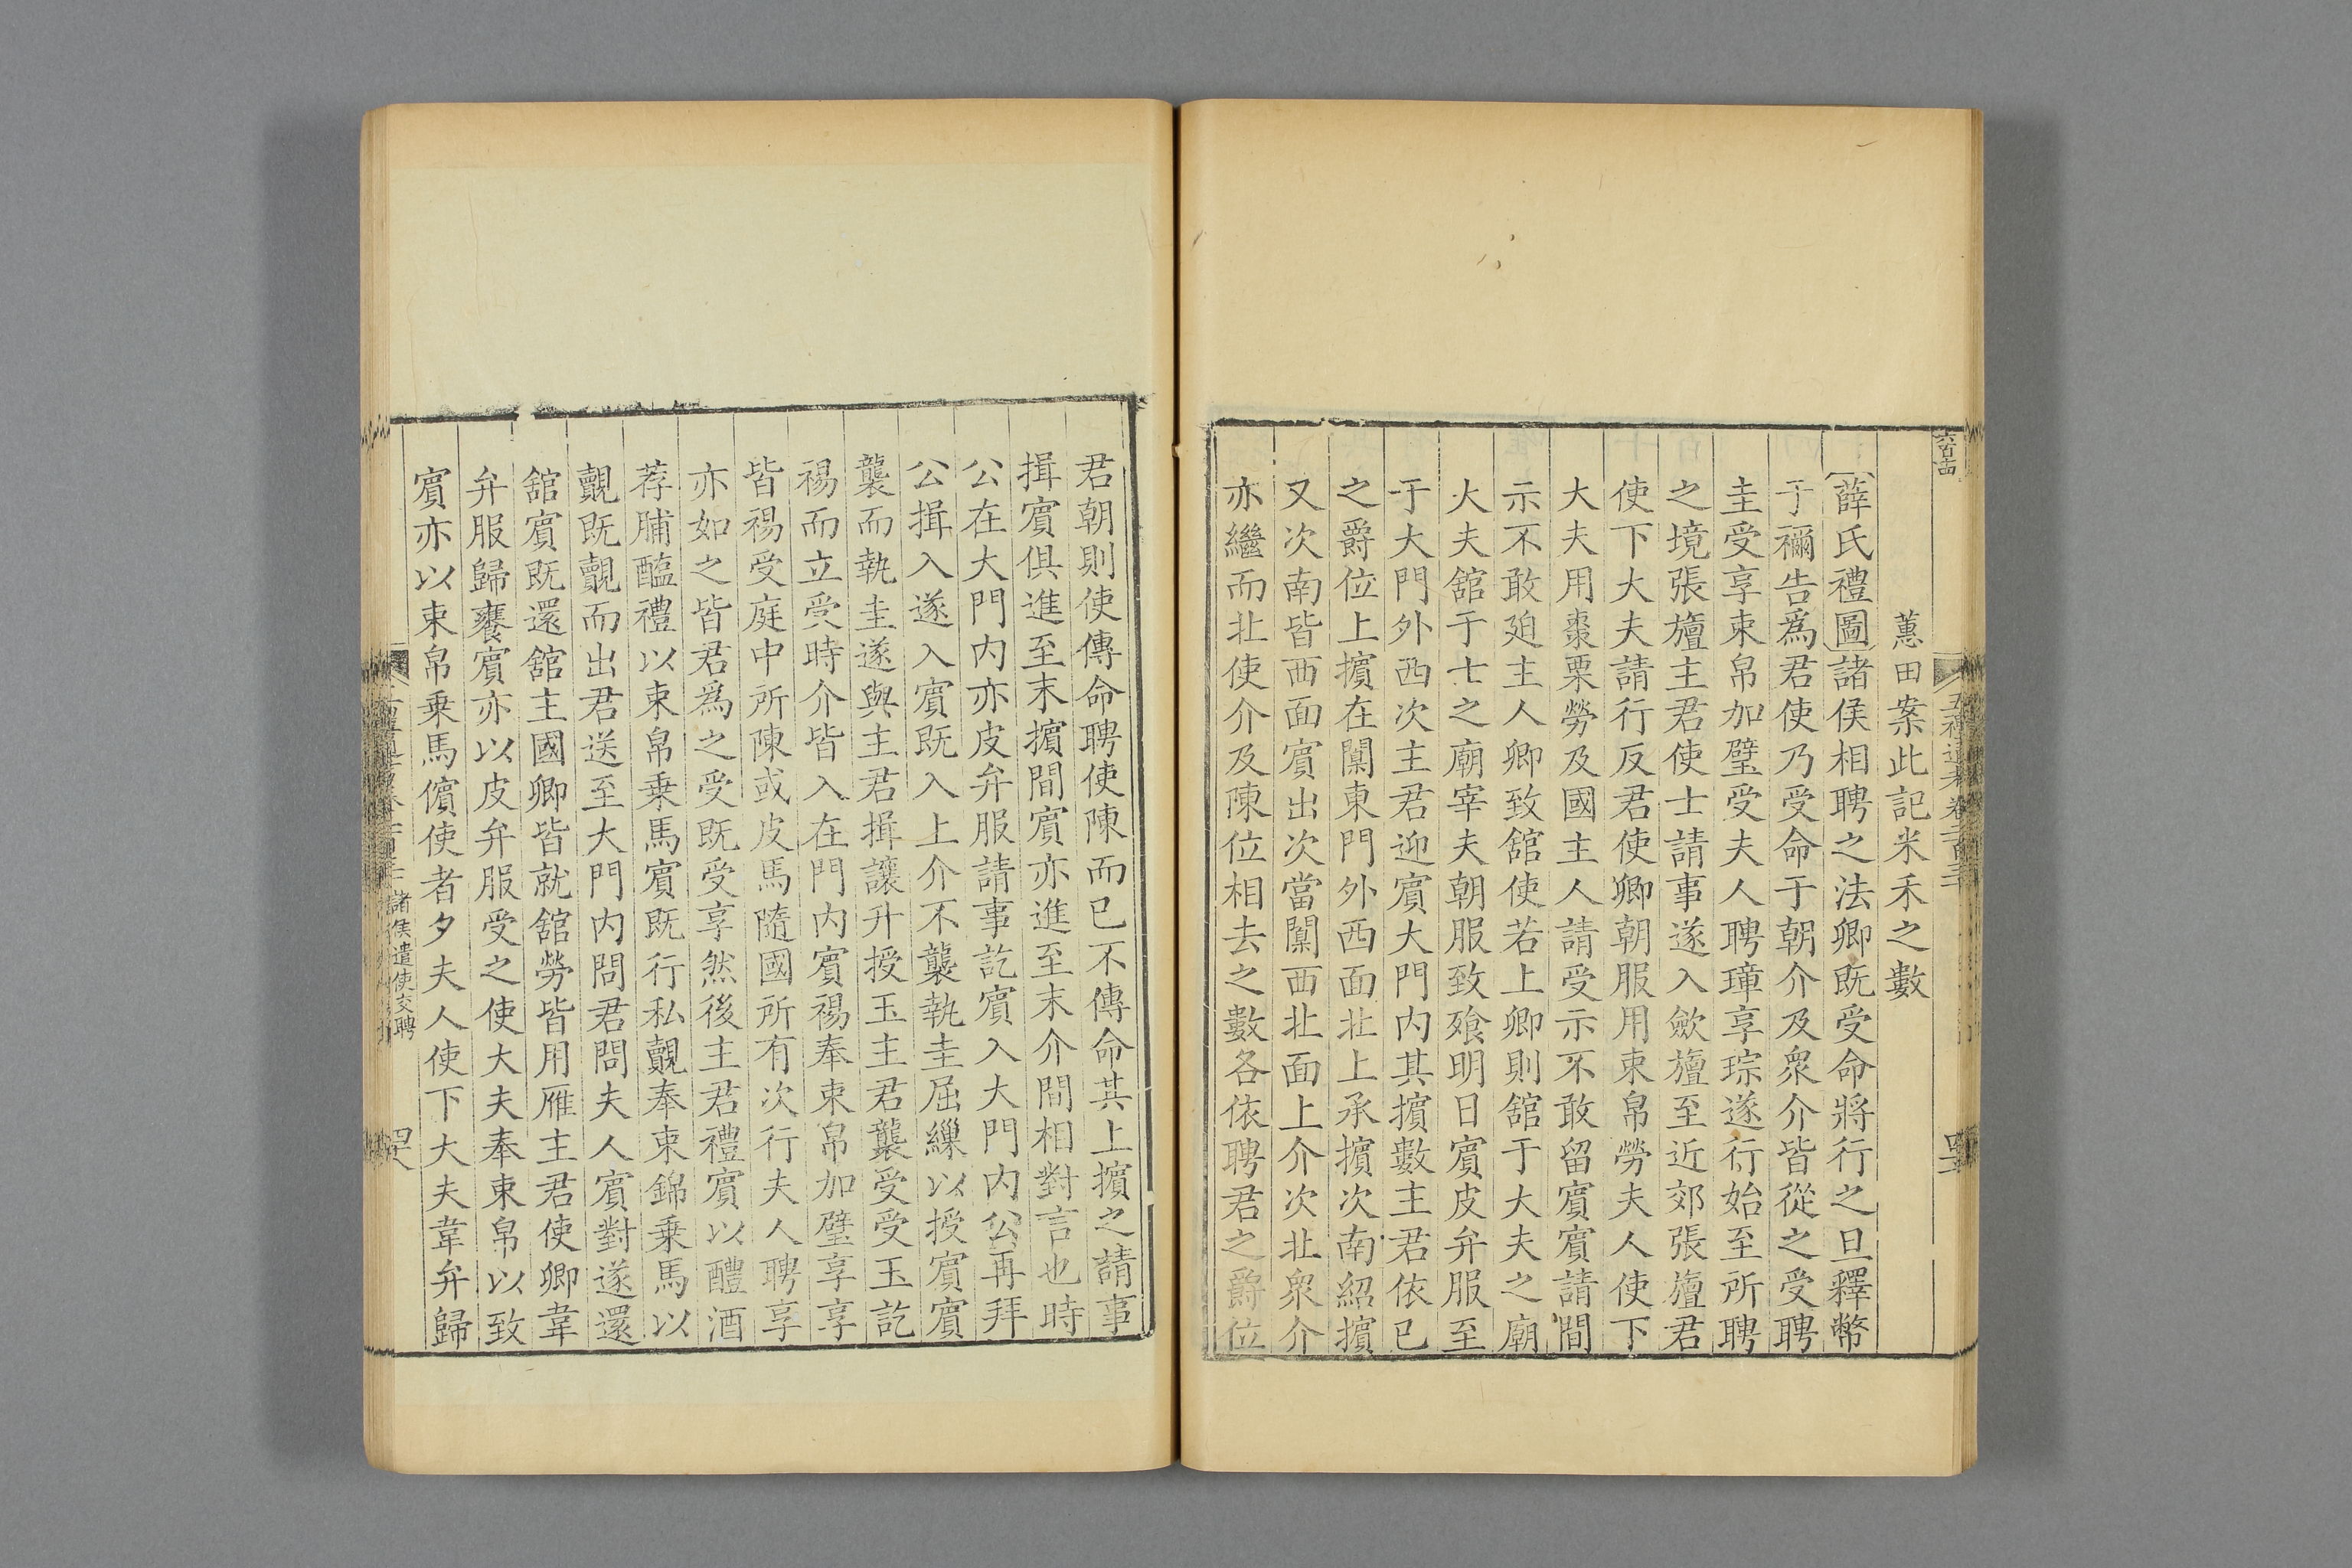 蕙田案此記米禾之數
薛氏禮圖諸侯相聘之法卿既受命將行之旦釋幣
于禰告爲君使乃受命于朝介及衆介皆從之受聘
圭受享束帛加璧受夫人聘璋享琮遂行始至所聘
之境張旜主君使士請事遂入歛旜至近郊張旜君
使下大夫請行反君使卿朝服用束帛勞夫人使下
大夫用棗栗勞及國主人請受示不敢留賓賓請間
示不敢廹主人卿致舘使若上卿則舘于大夫之廟
大夫舘于士之廟宰夫朝服致飱明日賓皮弁服至
于大門外西次主君迎賓大門內其擯數主君依已
之爵位上擯在闑東門外西面北上承擯次南紹擯
又次南皆西面賓出次當闑西北面上介次北衆介
亦繼而北使介及陳位相去之數各依聘君之爵位
君朝則使傳命聘使陳而已不傳命其上擯之請事
揖賓俱進至末擯間賓亦進至末介間相對言也時
公在大門內亦皮弁服請事訖賓入大門內公再拜
公揖入遂入賓既入上介不襲執圭屈繅以授賓賓
襲而執圭遂與主君揖讓升授玉主君襲受受玉訖
裼而立受時介皆入在門內賓裼奉束帛加璧享享
皆裼受庭中所陳或皮馬隨國所有次行夫人聘享
亦如之皆君爲之受既受享然後主君禮賓以醴酒
荐脯醢禮以束帛乗馬賓既行私覿奉束錦乗馬以
覿既覿而出君送至大門內問君問夫人賓對遂還
舘賓既還舘主國卿皆就舘勞皆用雁主君使卿韋
弁服歸饔賓亦以皮弁服受之使大夫奉束帛以致
賓亦以束帛乗馬儐使者夕夫人使下大夫韋弁歸
諸侯遣使交聘